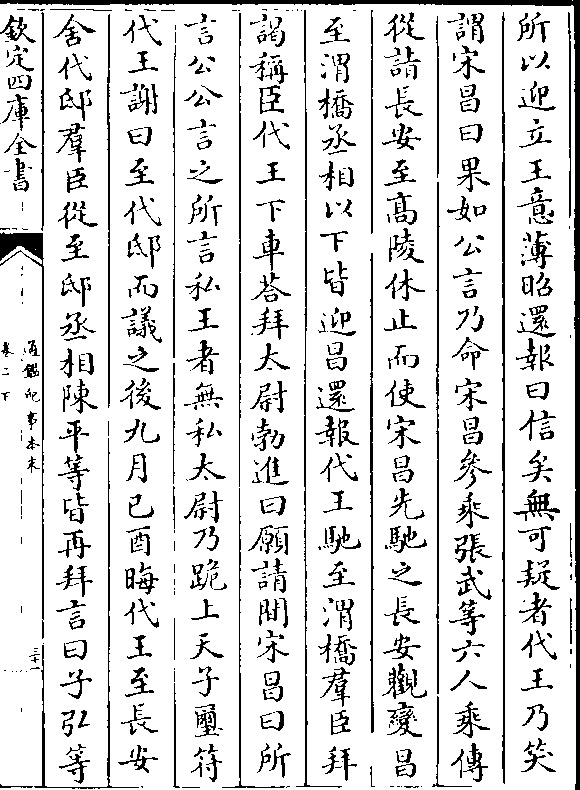 所以迎立王意薄昭還報曰信矣無可疑者代王乃笑
謂宋昌曰果如公言乃命宋昌參乘張武等六人乘傳
從詣長安至髙陵休止而使宋昌先馳之長安觀變昌
至渭橋丞相以下皆迎昌還報代王馳至渭橋羣臣拜
謁稱臣代王下車荅拜太尉勃進曰願請間宋昌曰所
言公公言之所言私王者無私太尉乃跪上天子璽符
代王謝曰至代邸而議之後九月己酉晦代王至長安
舍代邸羣臣從至邸丞相陳平等皆再拜言曰子弘等
欽定四庫全書
通鑑紀事本末
卷二下
三十一